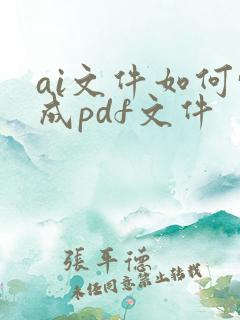 ai文件如何
成pdf文件
張平德
未经同意禁止转载